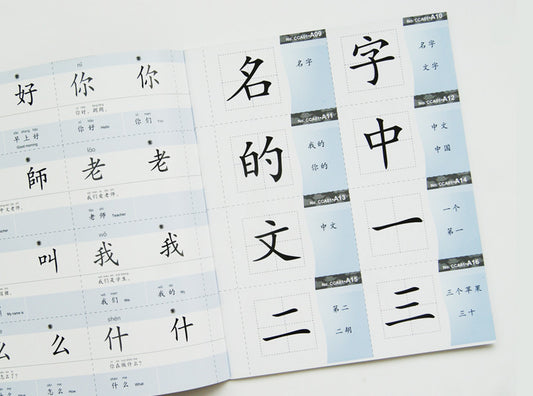 好
nǐ
你
你
早上好
Good morning
你好
Hello
你们
You
師
lǎo
老
老
中文老师。
我们爱老师。
老师
Teacher
叫
wǒ
我
我
我们是学生。
My name is
我们
We
我的
My
么
么
shén
什
什
你在做什么？
怎么
How
什么
What
No. CCA01-A09
名
名字
No. CCA01-A10
字
名字
文字
No. CCA01-A11
的
我的
你的
No. CCA01-A12
中
中文
中国
No. CCA01-A13
文
中文
No. CCA01-A14
一
一个
第一
No. CCA01-A15
二
第二
二胡
No. CCA01-A16
三
三个苹果
三十